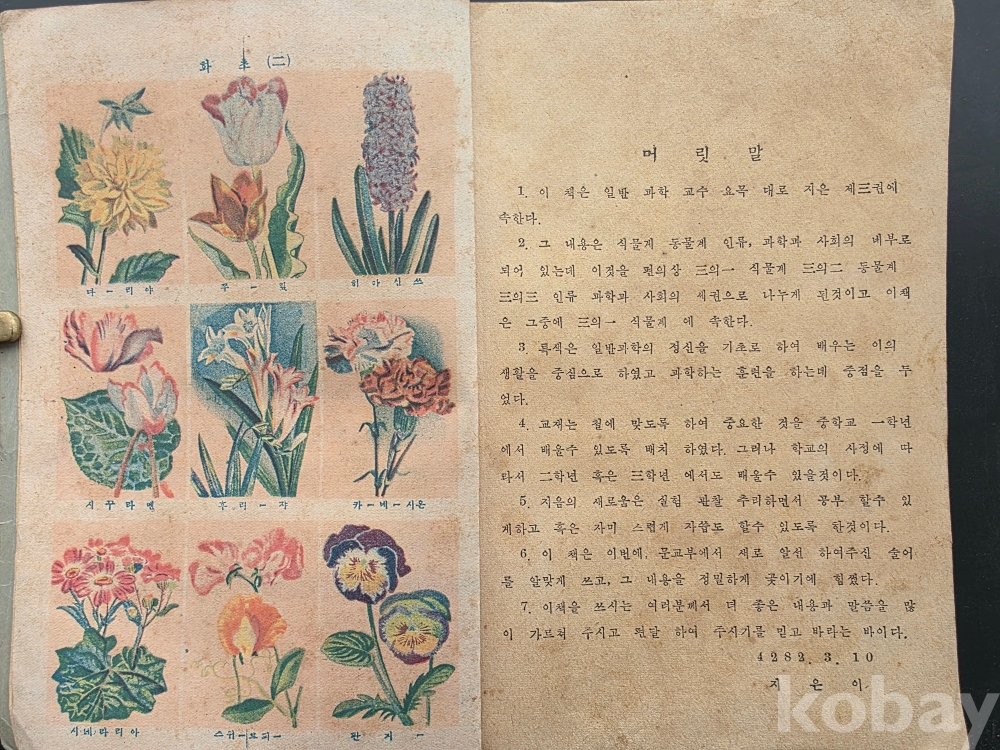 화 초 (二)
다ー리야 쭈ー맆 히야신쓰
시쿠라멘 후리ー쟈 카ー네ー시온
시네라리아 스위ー트피ー 판지ー
머 릿 말
1. 이 책은 일반 과학 교수 요목 대로 지은 제三권에
속한다.
2. 그 내용은 식물게 동물게 인류, 과학과 사회의 네부로
되어 있는데 이것을 편의상 三의一 식물게 三의二 동물게
三의三 인류 과학과 사회의 세권으로 나누게 된것이고 이책
은 그중에 三의一 식물게 에 속한다.
3. 특색은 일반과학의 정신을 기초로 하여 배우는 이의
생활을 중심으로 하였고 과학하는 훈련을 하는데 중점을 두
었다.
4. 교재는 철에 맞도록 하여 중요한 것을 중학교 一학년
에서 배울수 있도록 배치 하였다. 그러나 학교의 사정에 따
라서 二학년 혹은 三학년 에서도 배울수 있을것이다.
5. 지음의 새로움은 실험 관찰 추리하면서 공부 할수 있
게하고 혹은 자미 스럽게 자습도 할수 있도록 한것이다.
6. 이 책은 이번에, 문교부에서 새로 알선 하여주신 술어
를 알맞게 쓰고, 그 내용을 정밀하게 꽃이기에 힘썼다.
7. 이책을 쓰시는 여러분께서 더 좋은 내용과 말씀을 많
이 가르쳐 주시고 편달 하여 주시기를 믿고 바라는 바이다.
4282. 3. 10
지 은 이
kobay